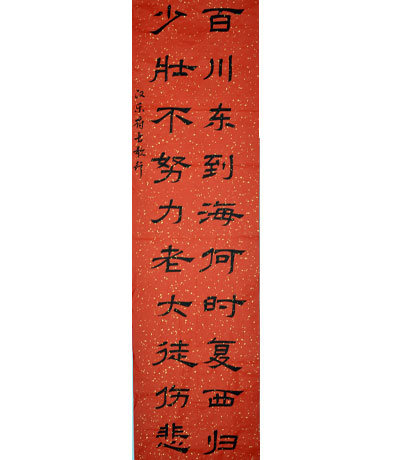 百川东到海何时复西归
少壮不努力老大徒伤悲
汉乐府长歌行